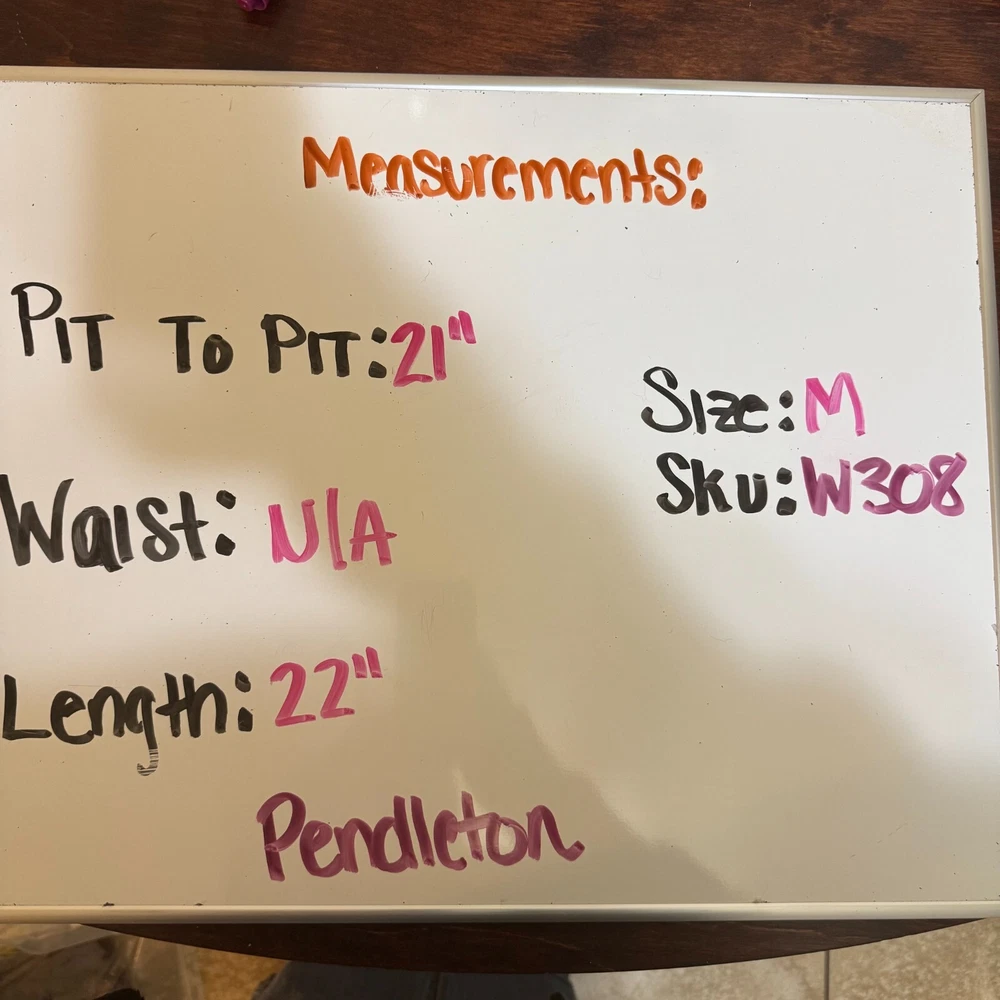 Measurements:
Pit To Pit: 21"
Size: M
Sku: W308
Waist: N/A
Length: 22"
Pendleton